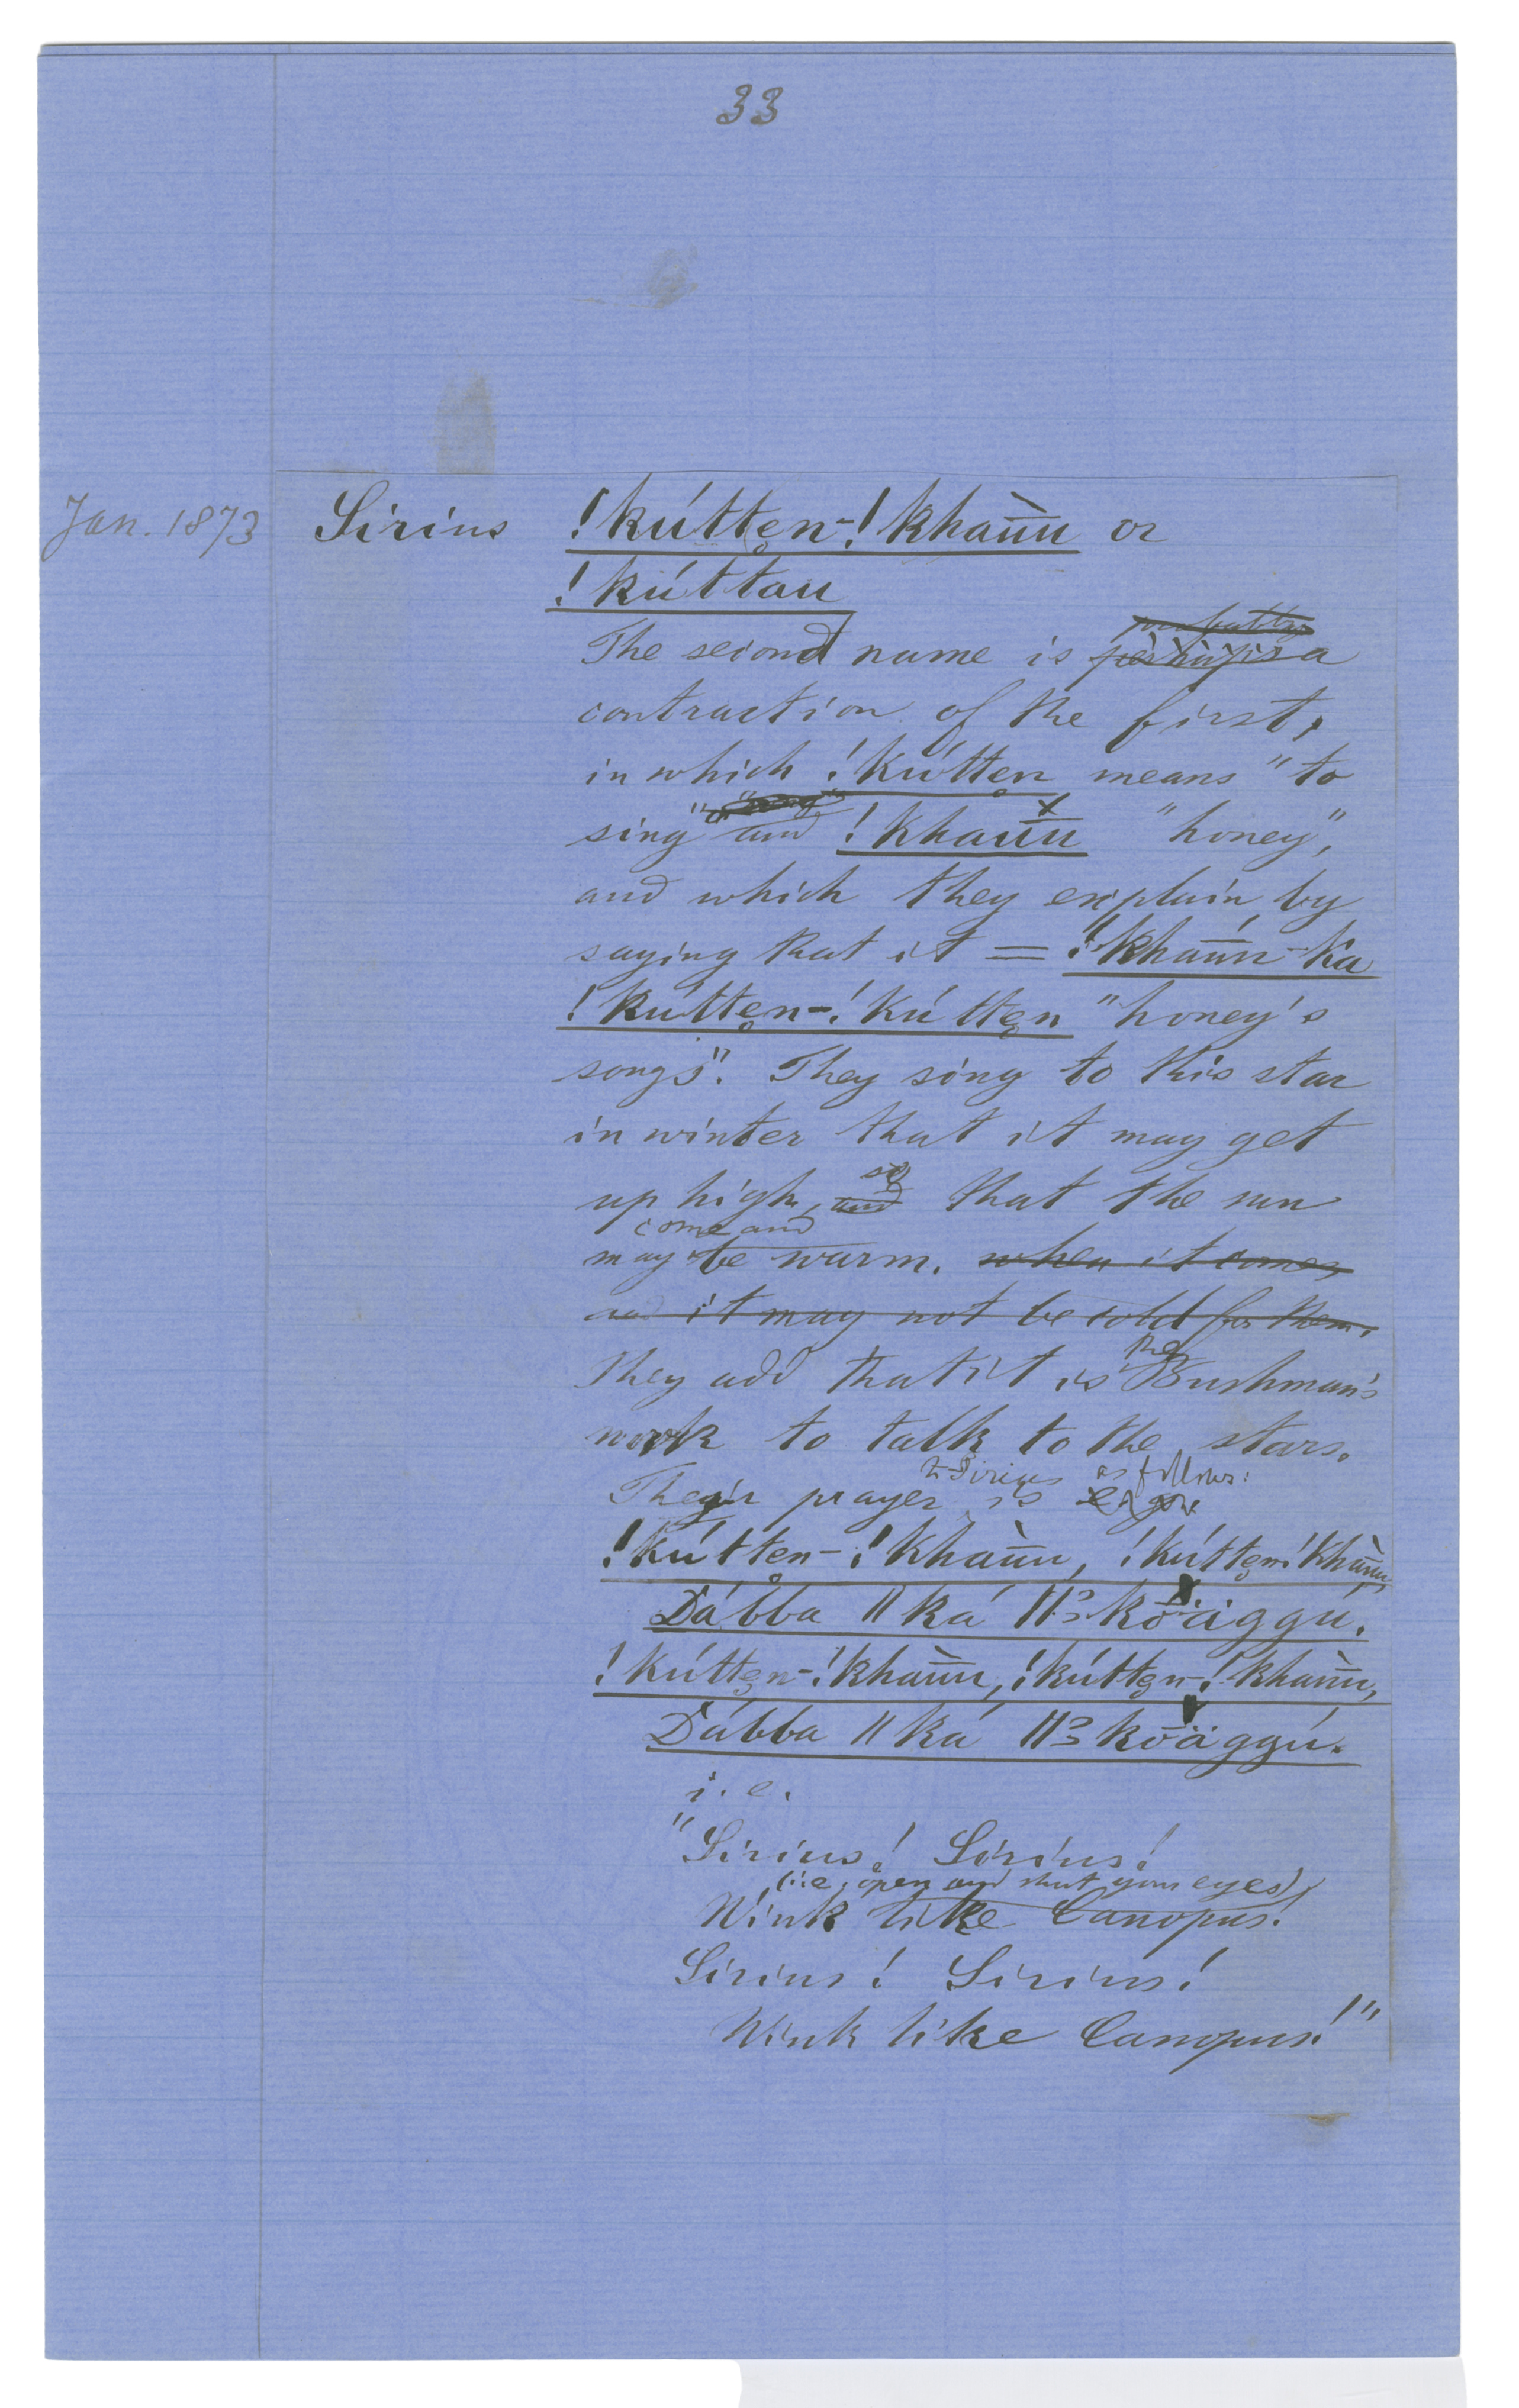 33
Jan. 1873 Sirius !kútten-!khau̅ù or
!kúttau
The second name is perhaps a
contraction of the first,
in which !kútten means "to
sing" and !khau̅u "honey",
and which they explain by
saying that it = !khau̅ú-ka
!kútten-!kútten "honey's
songs". They sing to this star
in winter that it may get
up high, and so that the sun
come and
may be warm. when it comes,
it may not be cold for them.
the
They add that it is Bushman's
work to talk to the stars.
to Sirius as follows:
Their prayer is
!kútten-!khau̅ù, !kútten-!khau̅ù,
Dábba ǁká ǁkō̈äggú.
!kútten-!khau̅ù, !kútten-!khau̅ù,
Dábba ǁká ǁkō̈äggú.
i.e.
"Sirius! Sirius!
(i.e. open and shut your eyes)
Wink like Canopus!
Sirius! Sirius!
Wink like Canopus!"